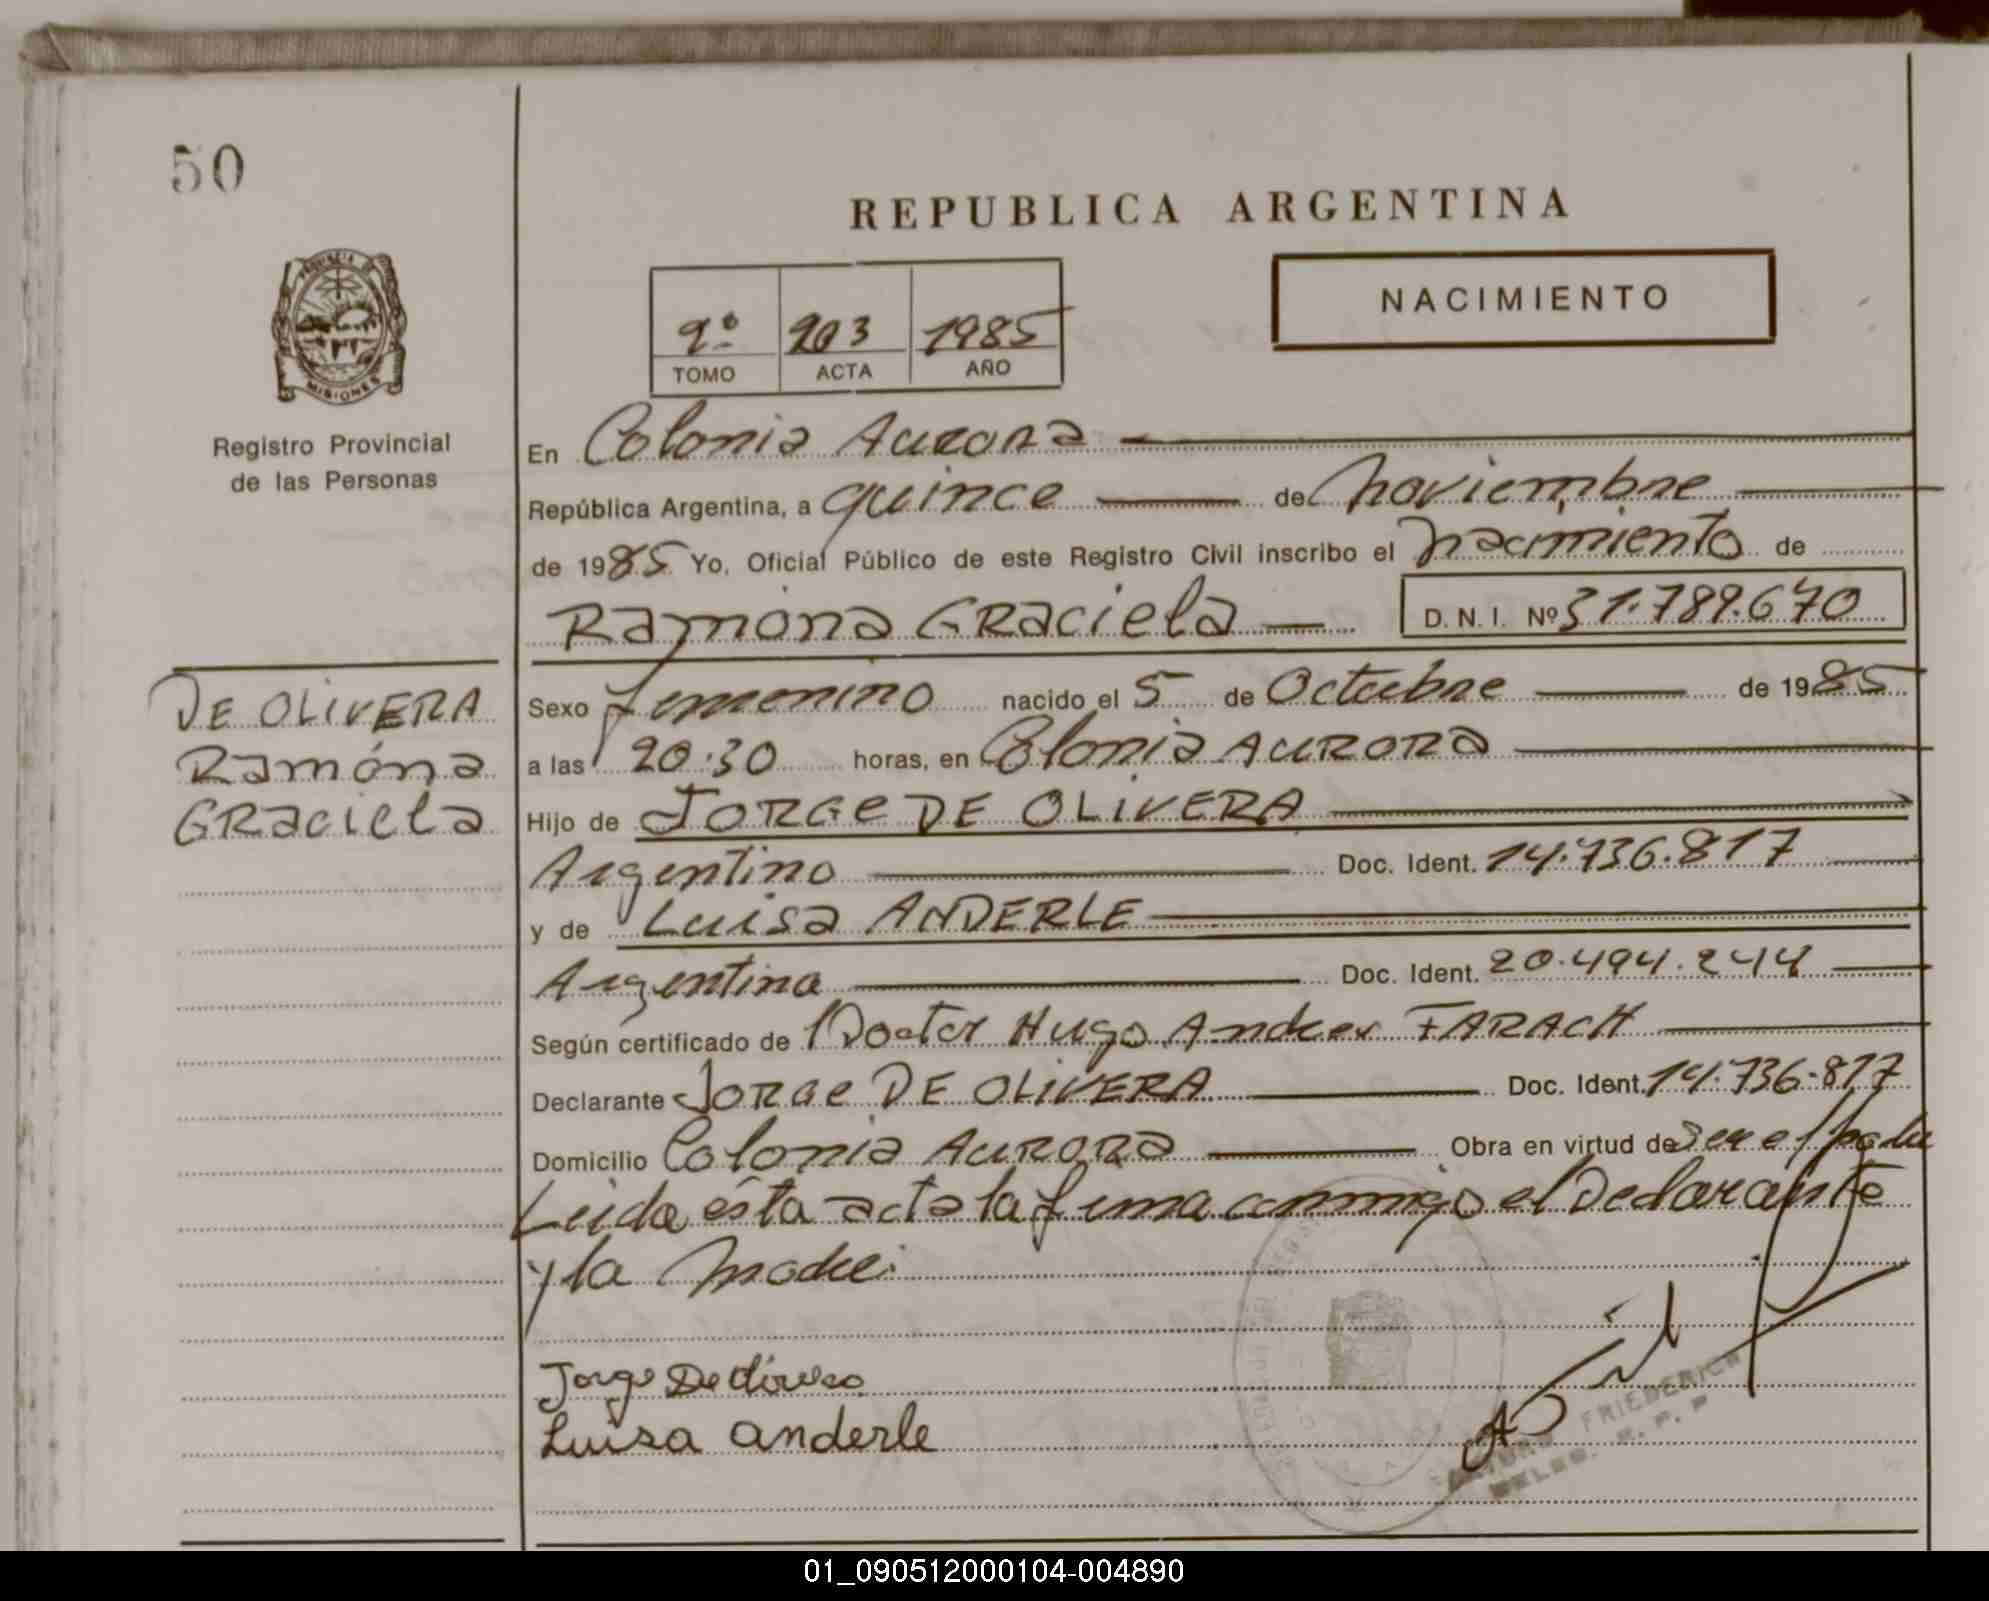 50
REPUBLICA ARGENTINA
NACIMIENTO
2º 203 1985
TOMO ACTA AÑO
PROVINCIA DE
MISIONES
Registro Provincial
de las Personas
En Colonia Aurora
República Argentina, a quince de noviembre
de 1985 Yo, Oficial Público de este Registro Civil inscribo el nacimiento de
Ramona Graciela D. N. I. Nº 31.789.670
DE OLIVERA
Ramóna
Graciela
Sexo femenino nacido el 5 de Octubre de 1985
a las 20.30 horas, en Colonia AURORA
Hijo de JORGE DE OLIVERA
Argentino Doc. Ident. 14.736.817
y de Luisa ANDERLE
Argentina Doc. Ident. 20.494.244
Según certificado de Doctor Hugo Andres FARACH
Declarante JORGE DE OLIVERA Doc. Ident. 14.736.817
Domicilio Colonia AURORA Obra en virtud de ser el padre
Leida ésta acta la firma conmigo el Declarante
y la madre.
Jorge De
Luisa anderle
FRIEDERICH
R. P. P
01_090512000104-004890